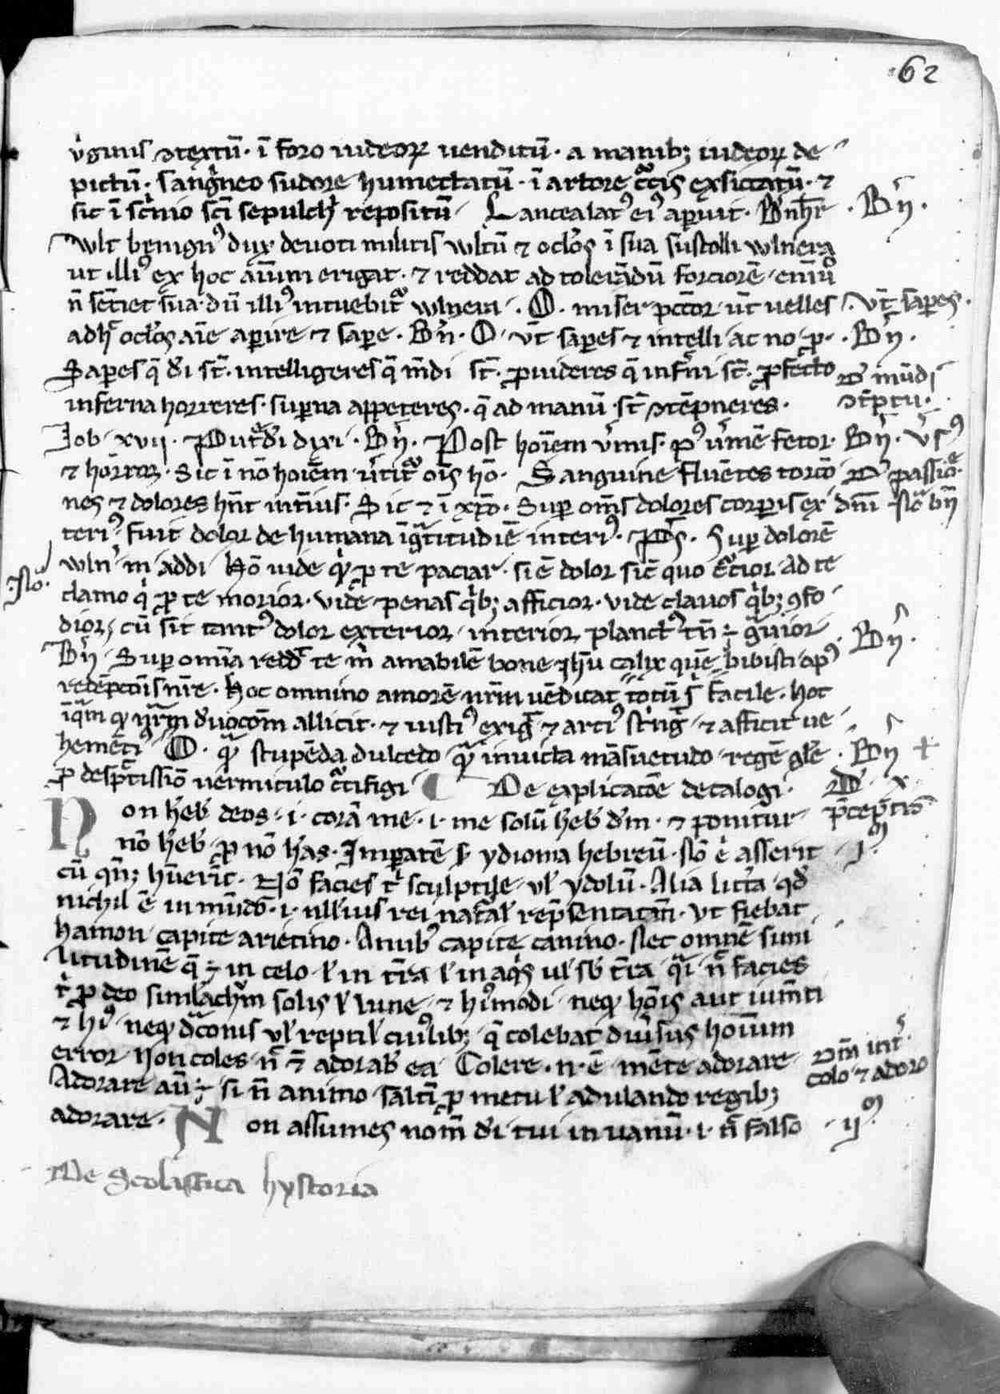 62
v̓ginis ↄtextū · ī foro iudeoꝝ uenditū · a manibꝫ iudeoꝝ de
pictū · sang̓neo sudore humectatū · ī arbore c̓cis exsiccatū · ⁊
sic ī sc̓nio sc̄i sepulch̓ repositū · Lancea lat᾽ ei᾽ aperuit · B̓nh̄r · Bn̄ ·
Vult benign᾽ dux deuoti militis vultū ⁊ oc̄los ī sua sustolli vulnera
ut illi᾽ ex hoc aīum erigat · ⁊ reddat ad tolerādū forciorē · enī
n̄ sētiet sua · dū illi᾽ intuebit᾽ vulnera · O · miser pcc̄or · ut̄ uelles · vt̄ saperes ·
adh᾽ oc̄los aīe aperire ⁊ sapere · Bn̄ · O · vt̄ saperes ⁊ intelli · ac no · p · Bn̄ ·
Saperes q̄ d̓i st̄ · intelligeres q̄ mūdi st̄ · ꝓuideres q̄ inf̓ni st̄ · ꝓfecto
D̓ mūdi
inferna horreres · superna appeteres · q̄ ad manū st̄ ↄtēpneres ·
ↄtēptu ·
Job · xvii · Put̓di dixi · Bn̄ · Post hoīem v̓mis · p᾽ v̓mē fetor · Bn̄ · v̓s᾽
⁊ horror · Sic ī nō hoīem v̓tit᾽ oīs hō · Sanguine fluētes
D̓ passiōe
nes ⁊ dolores hn̄t int̓ius · Sic ⁊ ī xp̄o · Super om̄s dolores corporis ex
dn̄i
teri᾽ fuit dolor de humana īg̓titudīe interi᾽ · Ps̄ · Super dolorē
vuln̓ m̓ addi · Hō uide q̓ ꝑ te paciar · si ē dolor sic̄ quo c̓cior · ad te
· Nō ·
clamo q̓ ꝑ te morior · vide penas q̓bꝫ afficior · vide clauos q̓bꝫ ↄfo
dior · cū sit tant᾽ dolor exterior · interior planct᾽ tn̄ ÷ g̓uior
Bn̄ ·
Bn̄ · Super omīa redd̄ te m̓ amabilē bone ihū calix quē bibisti op᾽
redēpcōis nr̄e · hoc omnino amorē nr̄m uēdicat totū s̓ facile · hoc
īq̄m q nr̄am d̓uocōm allicit · ⁊ iusti᾽ exig̓ ⁊ arci᾽ st̓ng̓ · ⁊ afficit ue
hemēti᾽ · O · q̄ stupēda dulcedo · q̄ inuicta māsuetudo · regē gl̄e
Bn̄ +
ꝓ desp̄tissio uermiculo c̓cifigi · De explicacōe decalogi ·
D̓ · x ·
p̄ceptis
Non heb̓ deos · i · corā me · i · me solū heb̓ d̓m · ⁊ ponitur
nō heb̓ · ꝓ nō h̓as · Imperatē s̓ ydioma hebreū · nō ē asserit
j᾽
cū qn̄ꝫ hūerīt · Nō facies t̓ sculptile · vl̓ ydolū · Alia litt̓a · qd̓
nichil ē in mūdo · i · ull̓ius rei nat̓al̓ rep̄sentatm̄ · vt fiebat
hamon capite arietino · Anub᾽ capite canino · Nec omnē simi
litudinē q̄ ÷ in celo · l̓ in t̄ra l̓ in aq̓s ul̓ sb̓ t̄ra · q̄i n̄ facies
t̓ ꝓ deo similachr̄m solis l̓ lune · ⁊ h᾽modi · neq hōis aut iumēti
⁊ h᾽ · neq d̓conis vl̓ reptil̓ cui᾽libꝫ · q̄ colebat diu̓sus hoīum
error · Non coles · n̄ ⁊ adorab̓ ea · Colere · n · ē mēte adorare
Dr̄m int̓
colo ⁊ adoro
Adorare aū ÷ si n̄ animo · saltī ꝓ metu l̓ adulando regibꝫ
adorare · Non assumes nom̄ d̓i tui in uanū · i · n̄ falso · ij᾽
De Scolastica hystoria